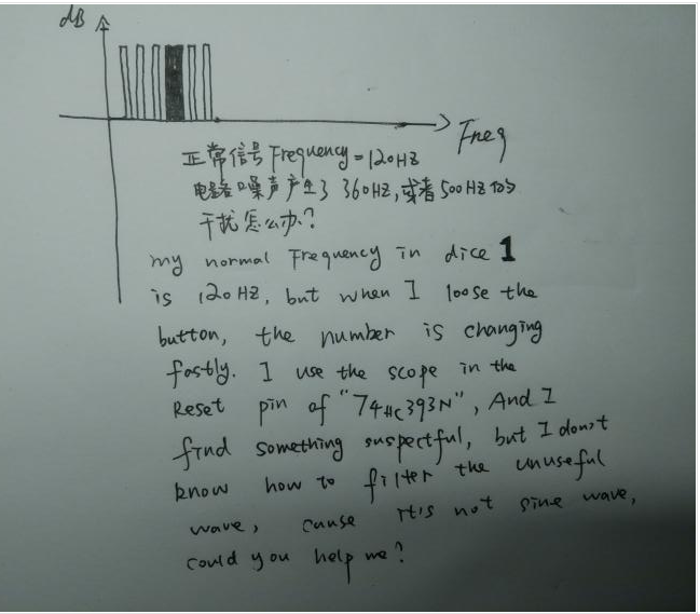 dB
Freq
正常信号 Frequency = 120HZ
电路噪声产生了 360HZ, 或者500HZ的
干扰怎么办?
my normal Frequency in dice 1
is 120HZ, but when I loose the
button, the number is changing
fastly. I use the scope in the
Reset pin of "74HC393N", And I
find something suspectful, but I don't
know how to filter the unuseful
wave, cause it's not sine wave,
could you help me?